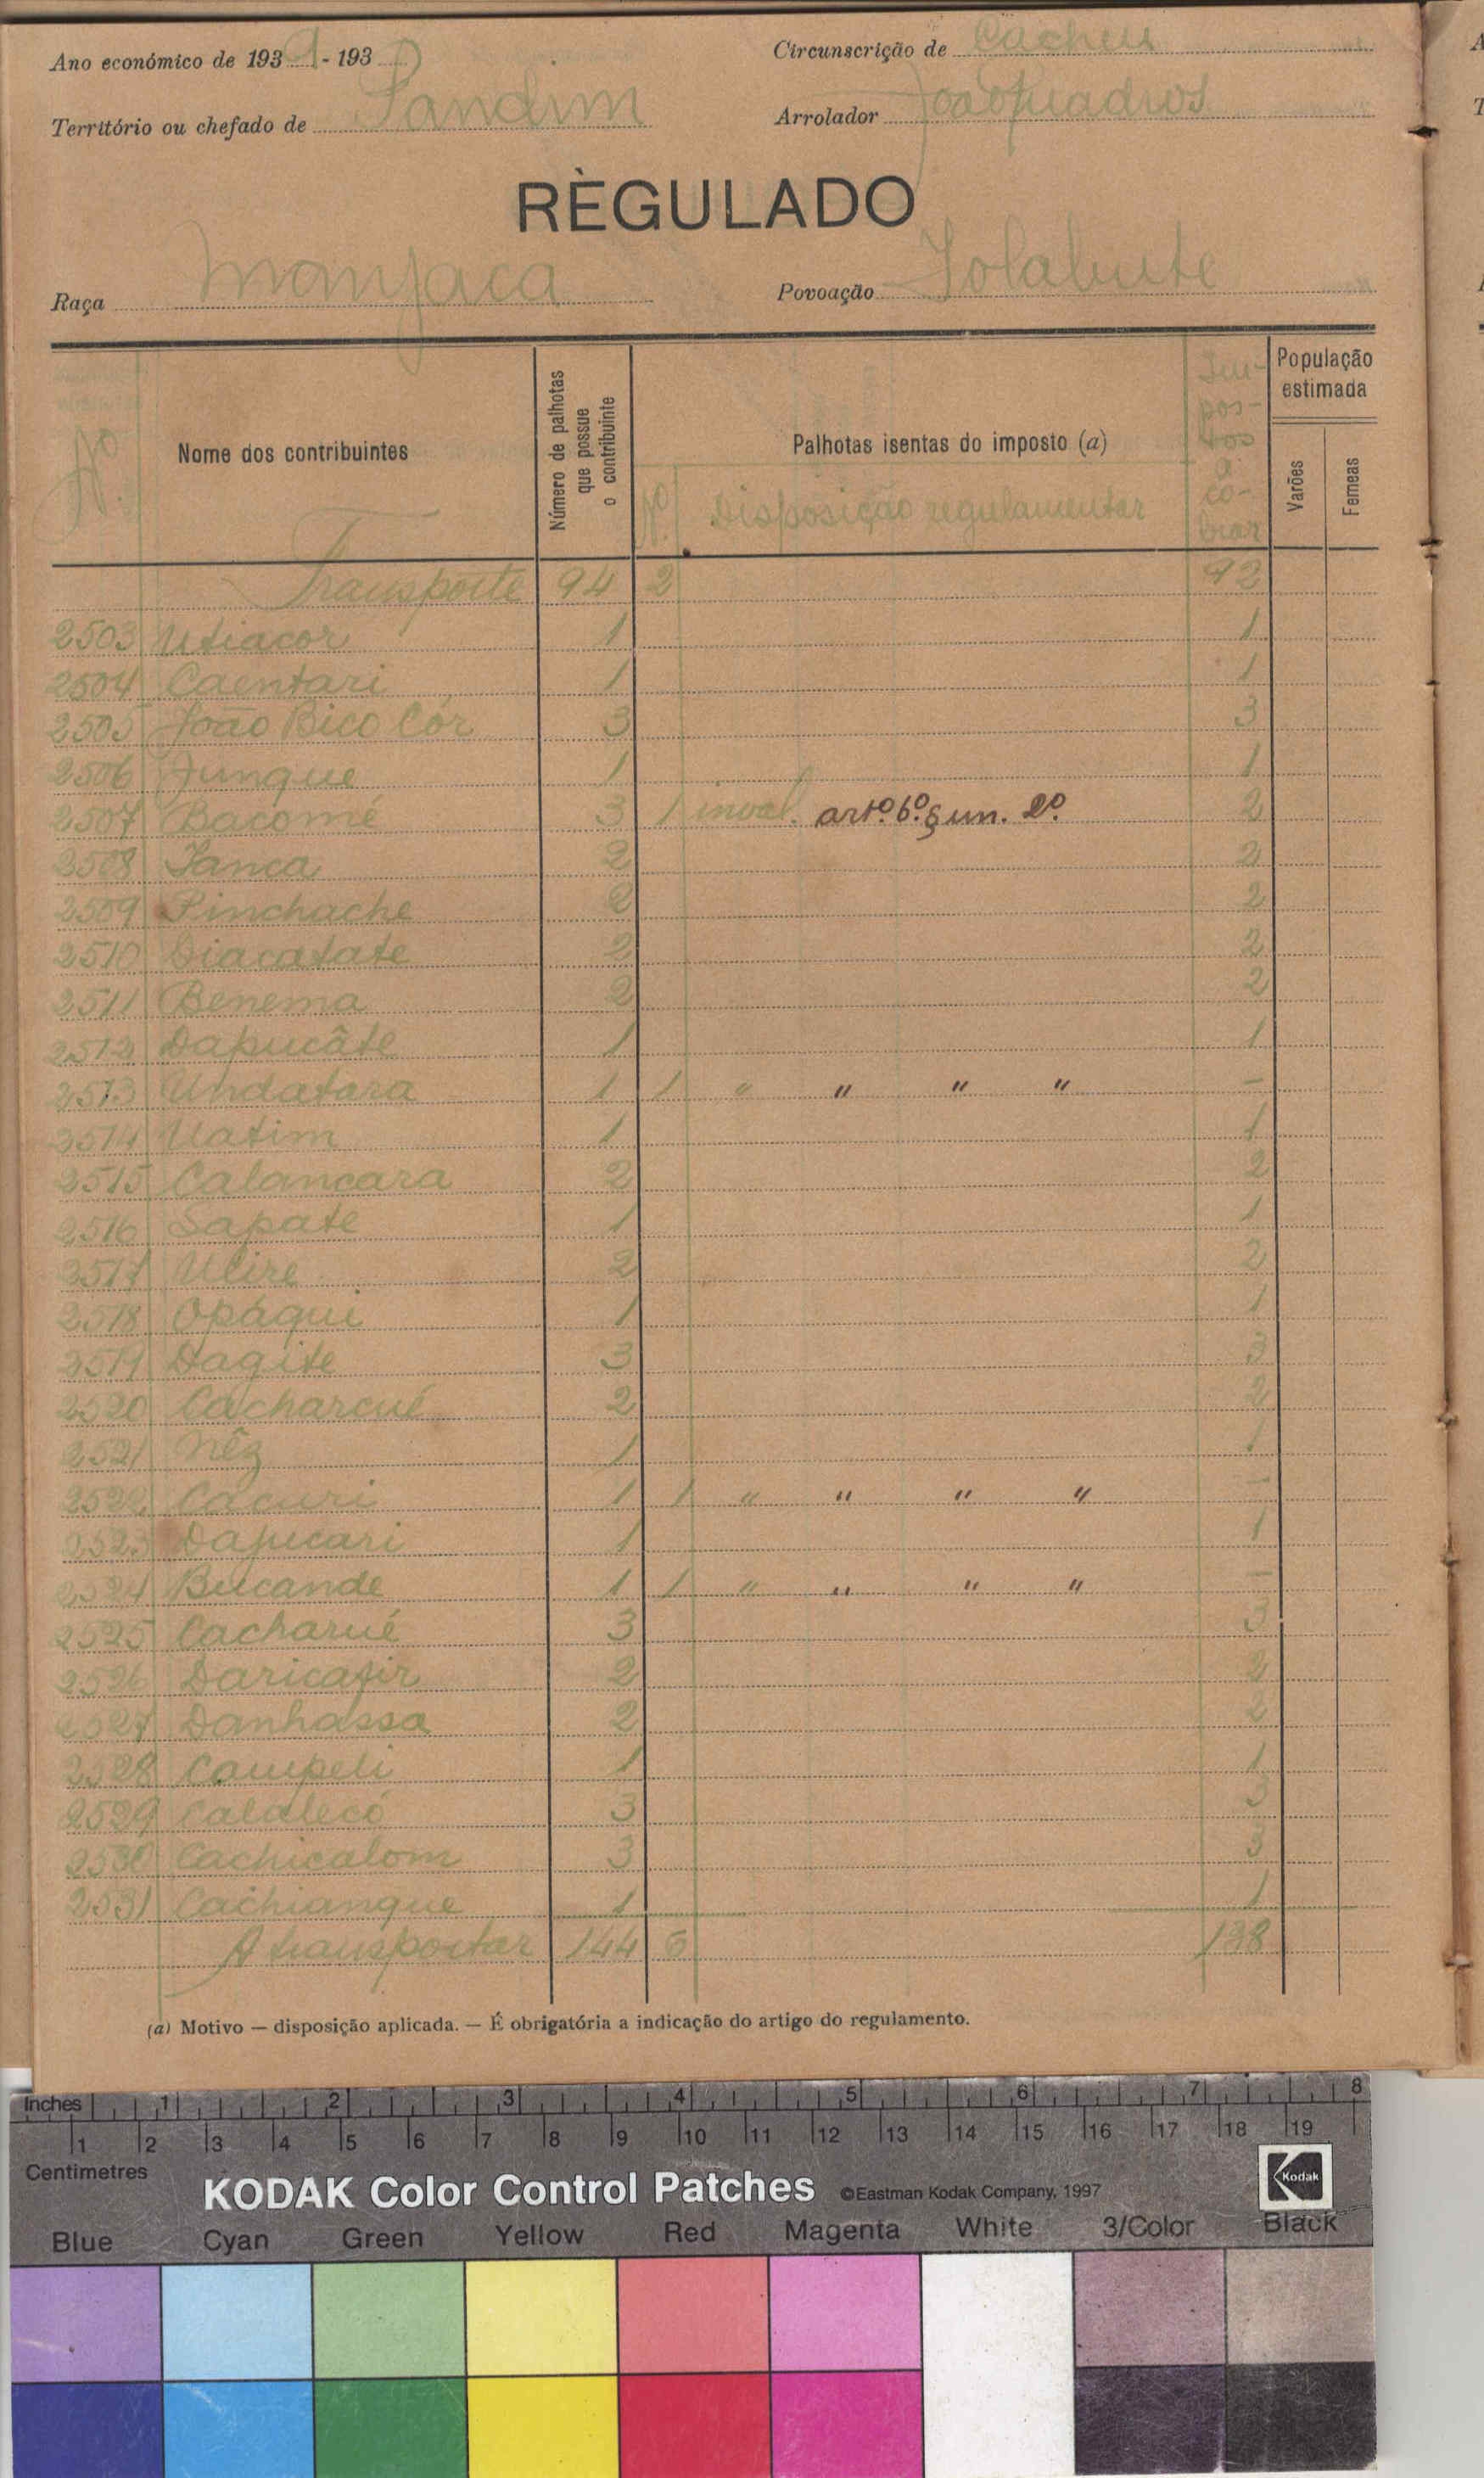 Ano económico de 193 - 193
Circunscrição de Cacheu
Território ou chefado de Pandim
Arrolador João Quadros
RÈGULADO
Raça Manjaca
Povoação Tolabute
Nº
Nome dos contribuintes
Número de palhotas que possue o contribuinte
Palhotas isentas do imposto (a)
Nº Disposição regulamentar
Im-pos-tos a co-brar
População estimada
Varões
Femeas
Transporte 94 2 92
2503 Utiacor 1 1
2504 Caentari 1 1
2505 João Bico Côr 3 3
2506 Junque 1 1
2507 Bacomé 3 1 inval. artº. 6º. § un. 2º. 2
2508 Janca 2 2
2509 Pinchache 2 2
2510 Diacatate 2 2
2511 Benema 2 2
2512 Dapucâte 1 1
2513 Undatara 1 1 " " " " -
2514 Uatim 1 1
2515 Calancara 2 2
2516 Sapate 1 1
2517 Ucire 2 2
2518 Opáqui 1 1
2519 Dagite 3 3
2520 Cacharcué 2 2
2521 Nêz 1 1
2522 Cacuri 1 1 " " " " -
2523 Dapucari 1 1
2524 Bucande 1 1 " " " " -
2525 Cacharué 3 3
2526 Daricafir 2 2
2527 Danhassa 2 2
2528 Campeli 1 1
2529 Calalecó 3 3
2530 Cachicalom 3 3
2531 Cachianque 1 1
A transportar 144 6 138
(a) Motivo — disposição aplicada. — É obrigatória a indicação do artigo do regulamento.
Inches 1 2 3 4 5 6 7 8
1 2 3 4 5 6 7 8 9 10 11 12 13 14 15 16 17 18 19
Centimetres
KODAK Color Control Patches ©Eastman Kodak Company, 1997 Kodak
Blue Cyan Green Yellow Red Magenta White 3/Color Black